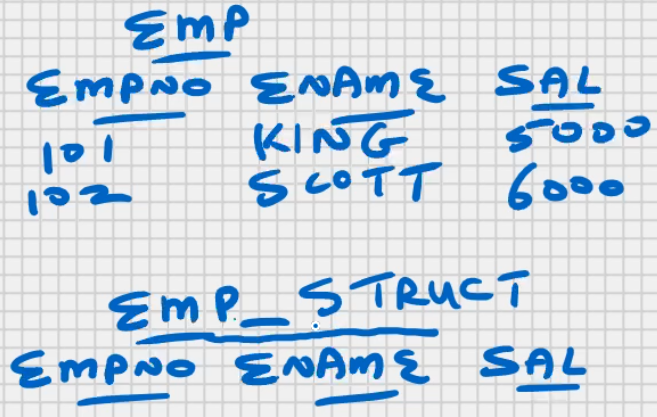 EMP
EMPNO ENAME SAL
101 KING 5000
102 SCOTT 6000
EMP_STRUCT
EMPNO ENAME SAL